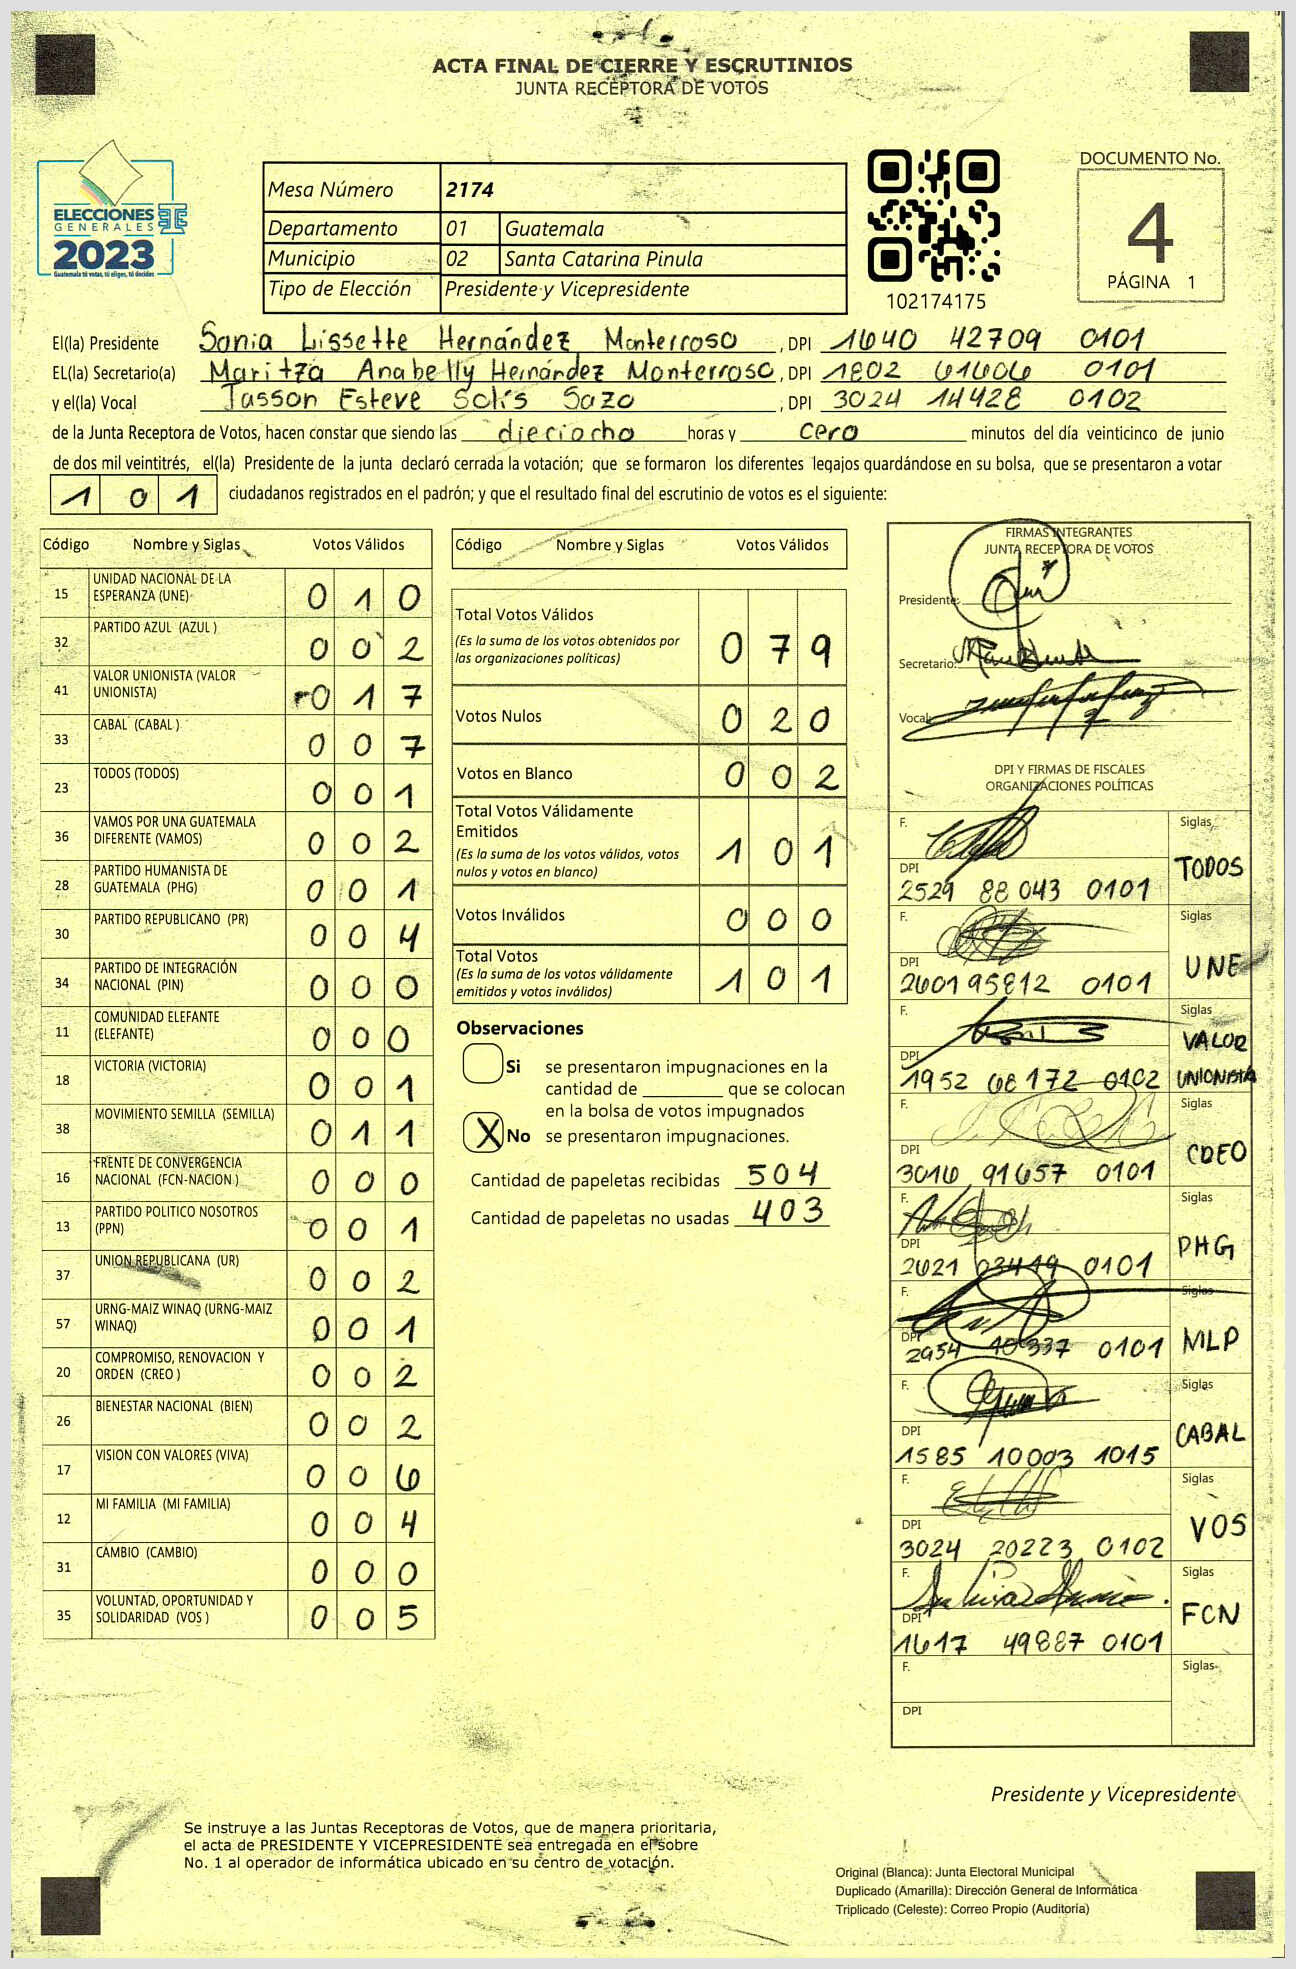 ACTA FINAL DE CIERRE Y ESCRUTINIOS
JUNTA RECEPTORA DE VOTOS
ELECCIONES
GENERALES
2023
Guatemala tú votas, tú eliges, tú decides
Mesa Número 2174
Departamento 01 Guatemala
Municipio 02 Santa Catarina Pinula
Tipo de Elección Presidente y Vicepresidente
102174175
DOCUMENTO No.
4
PÁGINA 1
El(la) Presidente Sonia Lissette Hernández Monterroso, DPI 1640 42709 0101
EL(la) Secretario(a) Maritza Anabelly Hernández Monterroso, DPI 1802 61606 0101
y el(la) Vocal Jasson Esteve Solís Sazo, DPI 3024 14428 0102
de la Junta Receptora de Votos, hacen constar que siendo las dieciocho horas y cero minutos del día veinticinco de junio
de dos mil veintitrés, el(la) Presidente de la junta declaró cerrada la votación; que se formaron los diferentes legajos guardándose en su bolsa, que se presentaron a votar
1 0 1 ciudadanos registrados en el padrón; y que el resultado final del escrutinio de votos es el siguiente:
Código Nombre y Siglas Votos Válidos
15 UNIDAD NACIONAL DE LA ESPERANZA (UNE) 0 1 0
32 PARTIDO AZUL (AZUL ) 0 0 2
41 VALOR UNIONISTA (VALOR UNIONISTA) 0 1 7
33 CABAL (CABAL ) 0 0 7
23 TODOS (TODOS) 0 0 1
36 VAMOS POR UNA GUATEMALA DIFERENTE (VAMOS) 0 0 2
28 PARTIDO HUMANISTA DE GUATEMALA (PHG) 0 0 1
30 PARTIDO REPUBLICANO (PR) 0 0 4
34 PARTIDO DE INTEGRACIÓN NACIONAL (PIN) 0 0 0
11 COMUNIDAD ELEFANTE (ELEFANTE) 0 0 0
18 VICTORIA (VICTORIA) 0 0 1
38 MOVIMIENTO SEMILLA (SEMILLA) 0 1 1
16 FRENTE DE CONVERGENCIA NACIONAL (FCN-NACION ) 0 0 0
13 PARTIDO POLITICO NOSOTROS (PPN) 0 0 1
37 UNION REPUBLICANA (UR) 0 0 2
57 URNG-MAIZ WINAQ (URNG-MAIZ WINAQ) 0 0 1
20 COMPROMISO, RENOVACION Y ORDEN (CREO ) 0 0 2
26 BIENESTAR NACIONAL (BIEN) 0 0 2
17 VISION CON VALORES (VIVA) 0 0 6
12 MI FAMILIA (MI FAMILIA) 0 0 4
31 CAMBIO (CAMBIO) 0 0 0
35 VOLUNTAD, OPORTUNIDAD Y SOLIDARIDAD (VOS ) 0 0 5
Código Nombre y Siglas Votos Válidos
Total Votos Válidos 0 7 9
(Es la suma de los votos obtenidos por
las organizaciones políticas)
Votos Nulos 0 2 0
Votos en Blanco 0 0 2
Total Votos Válidamente
Emitidos 1 0 1
(Es la suma de los votos válidos, votos
nulos y votos en blanco)
Votos Inválidos 0 0 0
Total Votos 1 0 1
(Es la suma de los votos válidamente
emitidos y votos inválidos)
Observaciones
Si se presentaron impugnaciones en la
cantidad de ________ que se colocan
en la bolsa de votos impugnados
X No se presentaron impugnaciones.
Cantidad de papeletas recibidas 504
Cantidad de papeletas no usadas 403
FIRMAS INTEGRANTES
JUNTA RECEPTORA DE VOTOS
Presidente:
Secretario:
Vocal:
DPI Y FIRMAS DE FISCALES
ORGANIZACIONES POLÍTICAS
F. Siglas
DPI TODOS
2529 88 043 0101
F. Siglas
DPI UNE
2601 95812 0101
F. Siglas
DPI VALOR
1952 68 172 0102 UNIONISTA
F. Siglas
DPI CREO
3016 91657 0101
F. Siglas
DPI PHG
2621 03419 0101
F. Siglas
DPI MLP
2954 10337 0101
F. Siglas
DPI CABAL
1585 10003 1015
F. Siglas
DPI VOS
3024 20223 0102
F. Siglas
DPI FCN
1617 49887 0101
F. Siglas
DPI
Presidente y Vicepresidente
Se instruye a las Juntas Receptoras de Votos, que de manera prioritaria,
el acta de PRESIDENTE Y VICEPRESIDENTE sea entregada en el sobre
No. 1 al operador de informática ubicado en su centro de votación.
Original (Blanca): Junta Electoral Municipal
Duplicado (Amarilla): Dirección General de Informática
Triplicado (Celeste): Correo Propio (Auditoría)